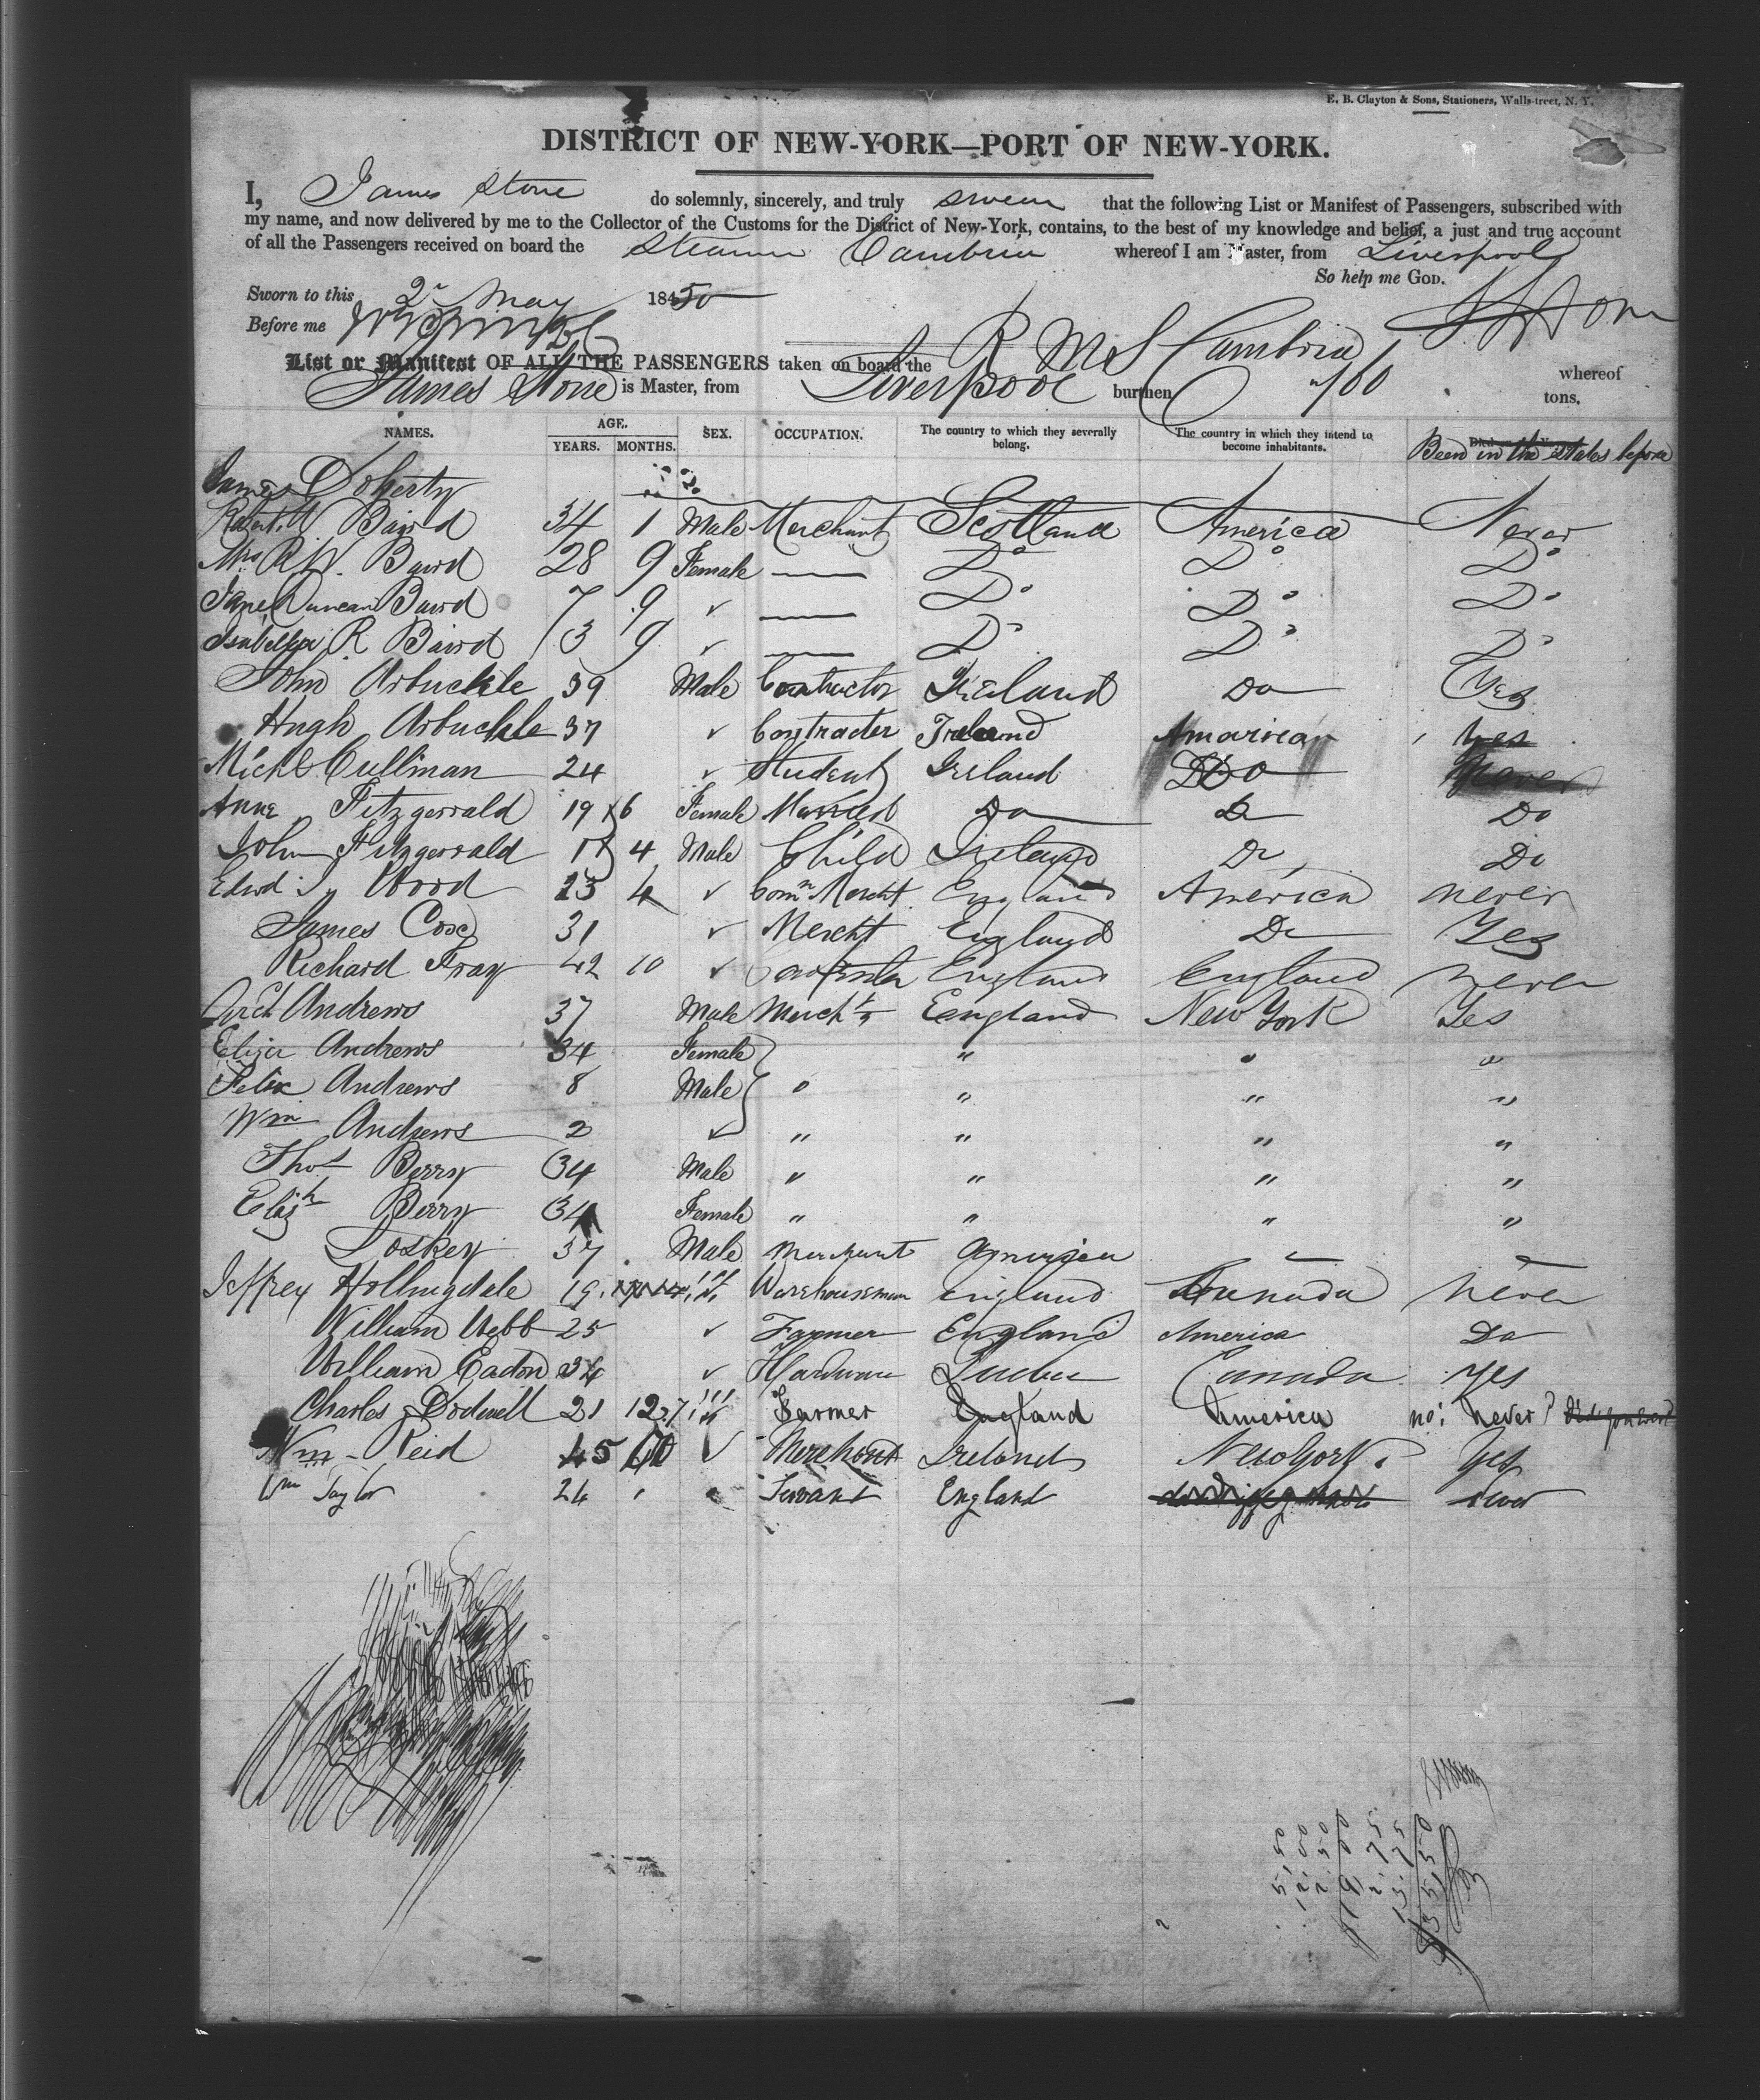 E. B. Clayton & Sons, Stationers, Wall-street, N. Y.
DISTRICT OF NEW-YORK—PORT OF NEW-YORK.
I, James Stone do solemnly, sincerely, and truly swear that the following List or Manifest of Passengers, subscribed with
my name, and now delivered by me to the Collector of the Customs for the District of New-York, contains, to the best of my knowledge and belief, a just and true account
of all the Passengers received on board the Steamer Cambria whereof I am Master, from Liverpool
So help me GOD.
Sworn to this 2 May 1850
Before me
List or Manifest OF ALL THE PASSENGERS taken on board the R M S Cambria whereof
James Stone is Master, from Liverpool burthen tons.
NAMES. AGE. YEARS. MONTHS. SEX. OCCUPATION. The country to which they severally belong. The country in which they intend to become inhabitants. Been in the States before
James Doherty
Robert W Baird 34 1 Male Merchant Scotland America Never
Mrs R. W. Baird 28 9 Female — Do Do Do
Jane Duncan Baird 7 9 ✓ — Do Do Do
Isabella R Baird 3 9 ✓ — Do Do Do
John Arbuckle 39 Male Contractor Ireland Do Yes
Hugh Arbuckle 37 ✓ Contracter Ireland American Yes
Michl Cullinan 24 ✓ Student Ireland Do Never
Anne Fitzgerrald 19 6 Female Married Do Do Do
John Fitzgerrald 4 Male Child Ireland Do Do
Edwd J. Wood 23 4 ✓ Comn Mercht England America never
James Cox 31 ✓ Mercht England Do Yes
Richard Fray 42 10 ✓ England England never
Archd Andrews 37 Male Mercht England New York Yes
Eliza Andrews 34 Female " " "
Felix Andrews 8 Male " " " "
Wm Andrews 2 ✓ " " " "
Thos Berry 34 Male " " " "
Elizth Berry 34 Female " " " "
Toskey 37 Male Merchant America
Jeffrey Hollingdale 19 Warehouseman England Canada Never
William Webb 25 ✓ Farmer England America Do
William Eadon 34 ✓ Hardware Quebec Canada yes
Charles Dodwell 21 Farmer England America no! never!
Wm Reid 45 ✓ Merchant Ireland New York Yes
Wm Taylor 24 Servant England never